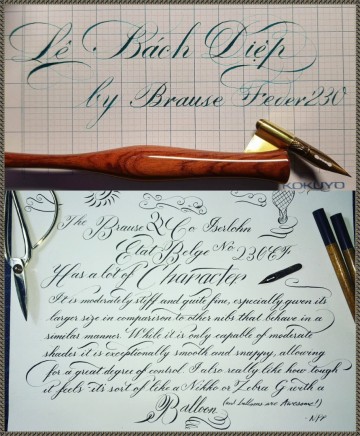 Lê Bách Diệp
by Brause Feder 230
KOKUYO
The Brause & Co Iserlohn
Etat Belge No 230 EF
Has a lot of Character
It is moderately stiff and quite fine, especially given its
larger size in comparison to other nibs that behave in a
similar manner. While it is only capable of moderate
shades it is exceptionally smooth and snappy, allowing
for a great degree of control. I also really like how tough
it feels - its sort of like a Nikko or Zebra G with a
Balloon (and balloons are Awesome!)